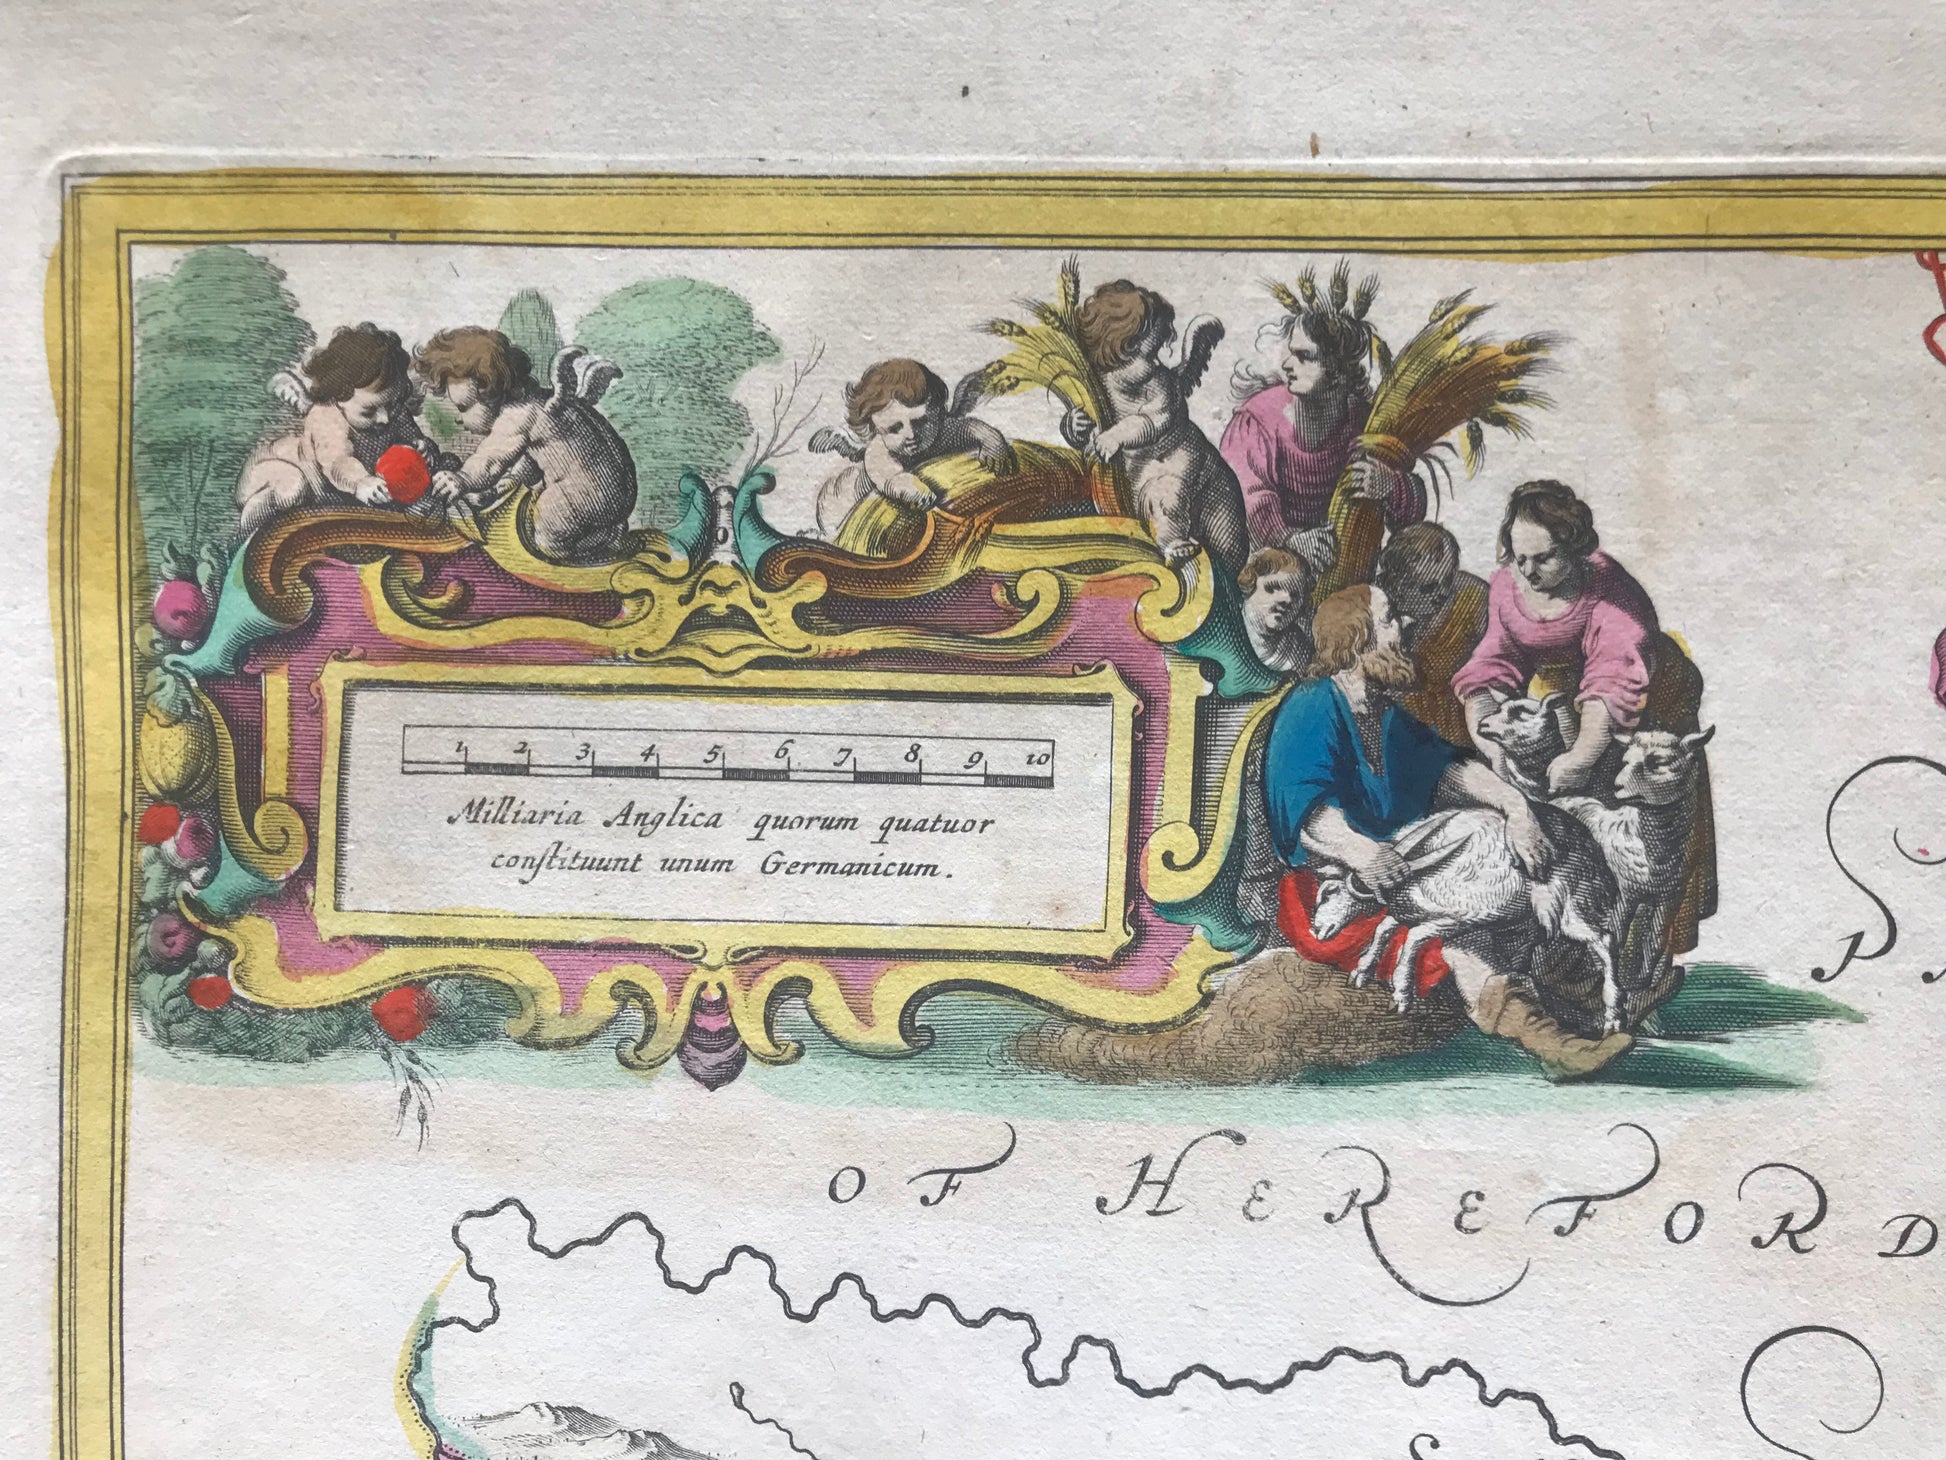 1 2 3 4 5 6 7 8 9 10
Milliaria Anglica quorum quatuor
conſtituunt unum Germanicum.
PA
OF HEREFORD
S